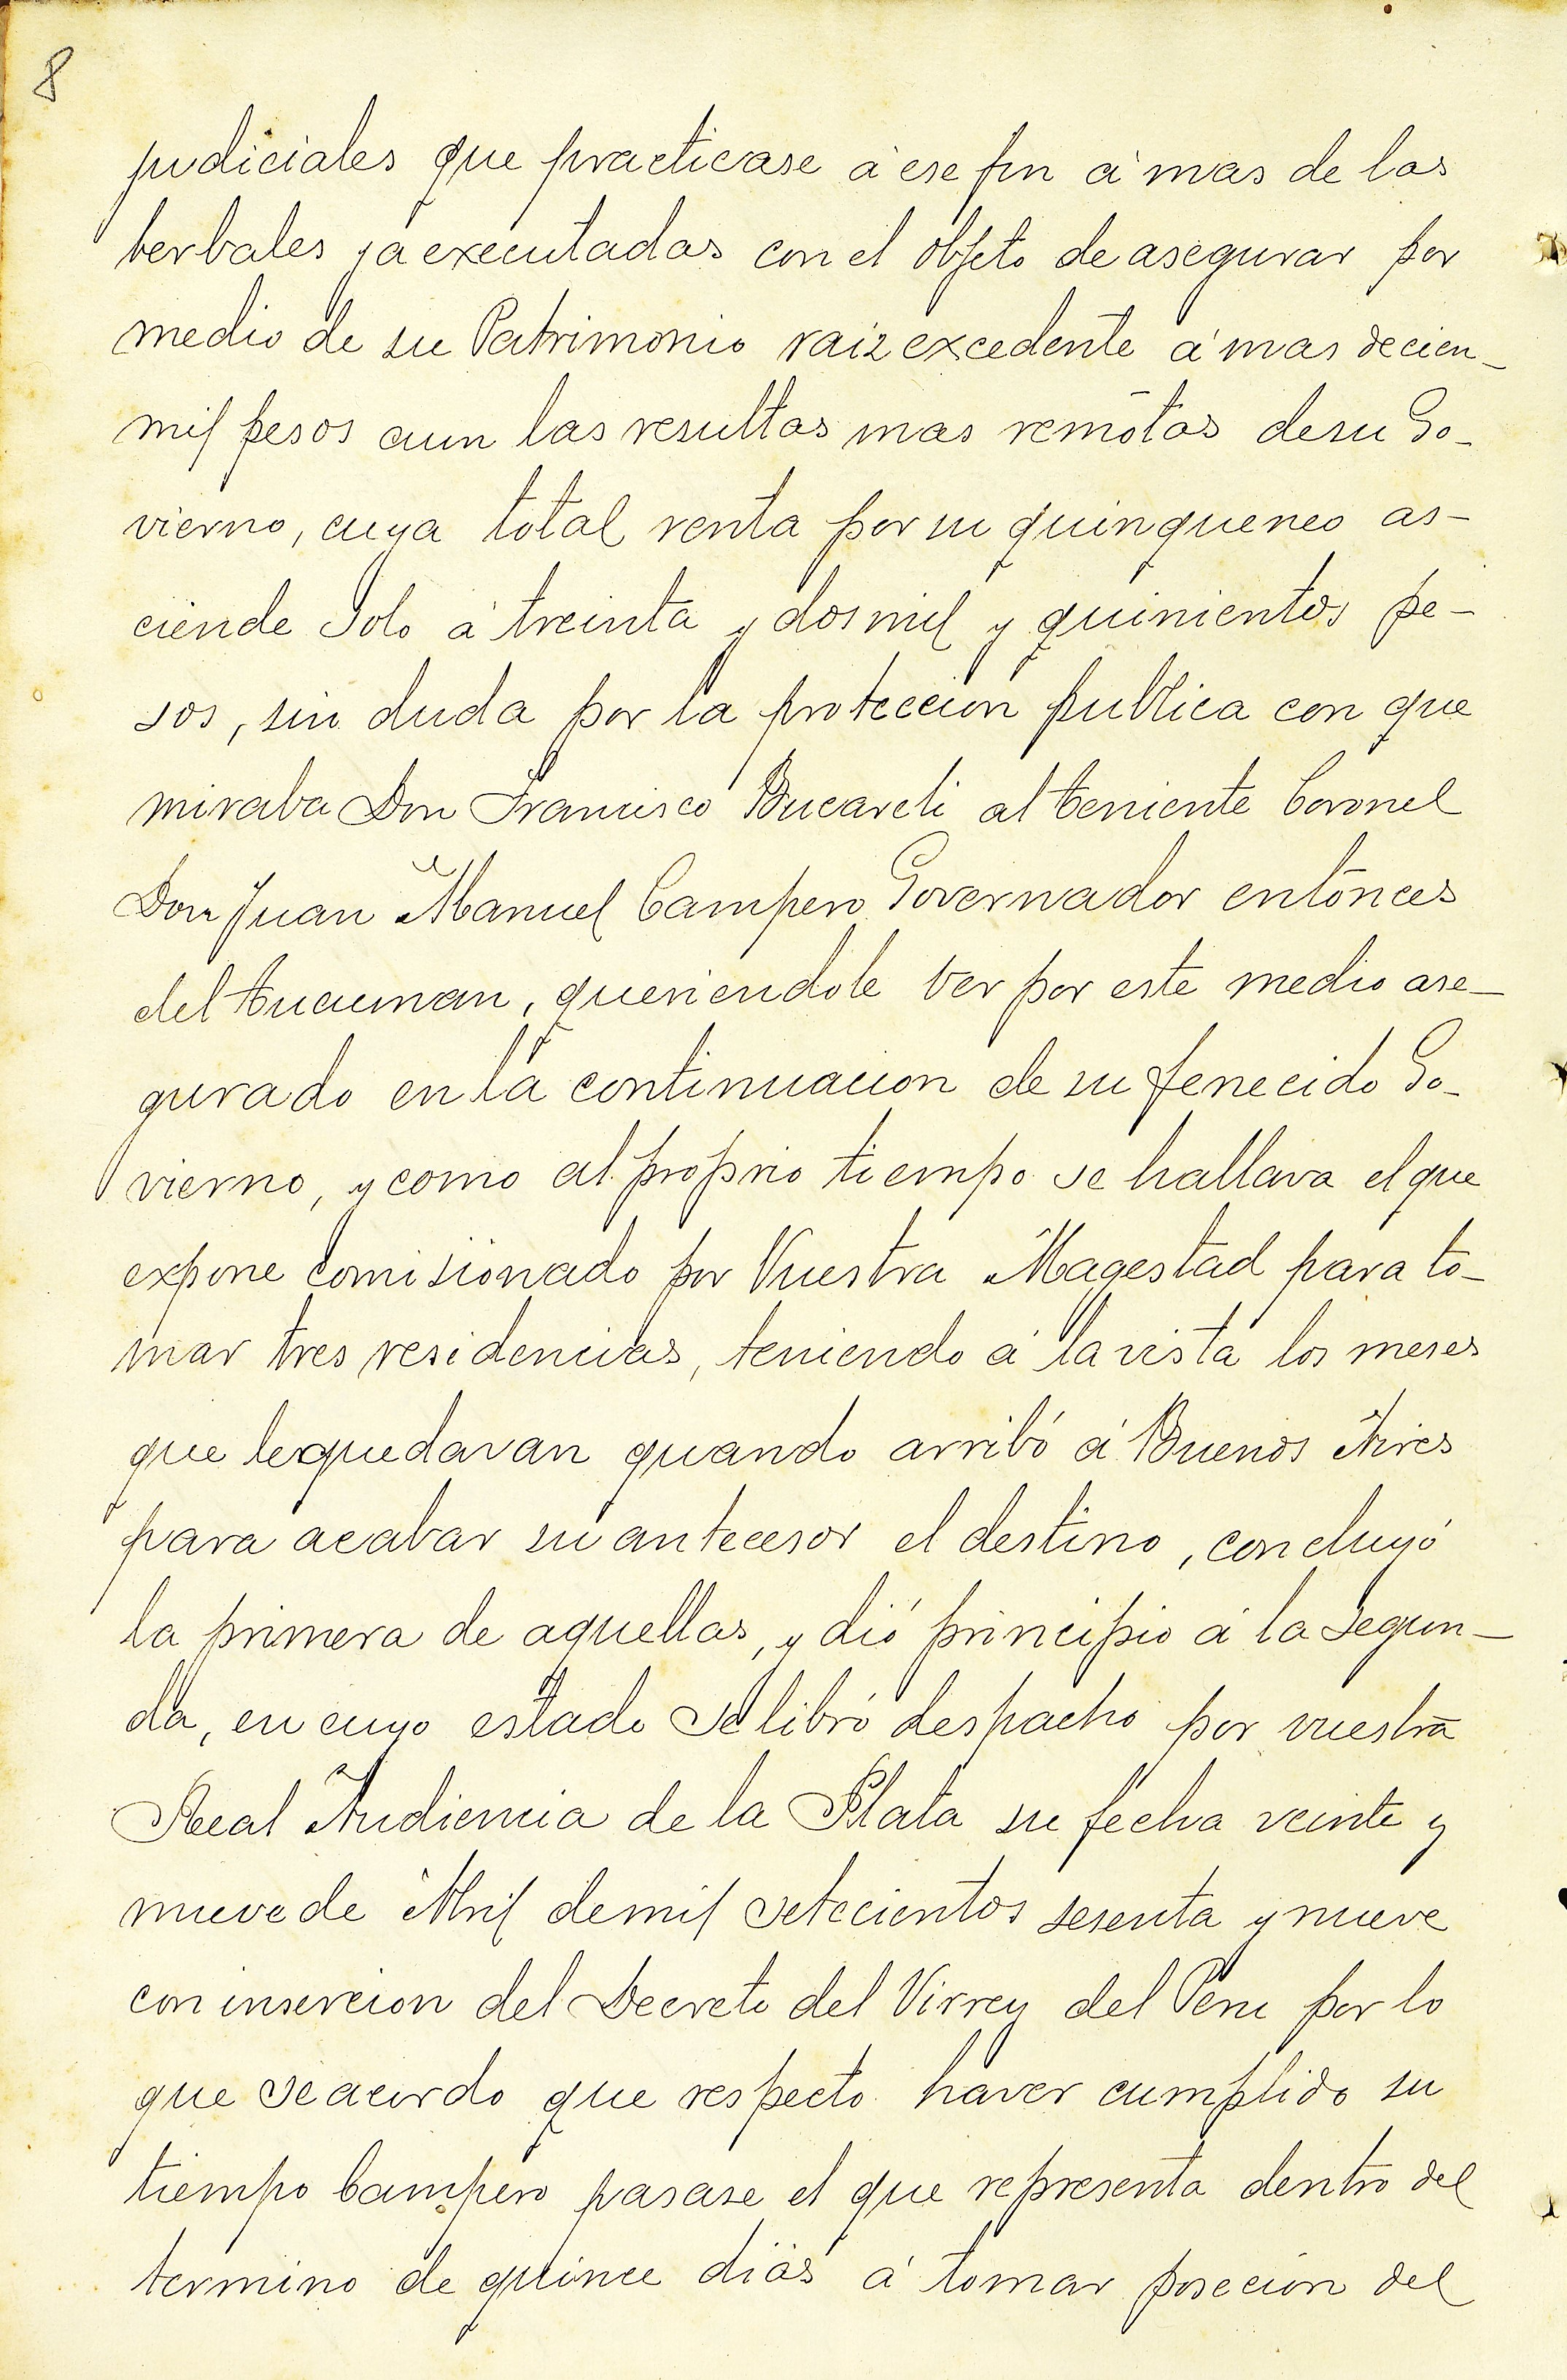 8
judiciales que practicase á ese fin á mas de las
berbales ya executadas con el objeto de asegurar por
medio de su Patrimonio raiz excedente á mas de cien-
mil pesos aun las resultas mas remotas de su Go-
vierno, cuya total renta por su quinqueneo as-
ciende solo á treinta y dos mil y quinientos pe-
sos, sin duda por la proteccion publica con que
miraba Don Francisco Bucareli al teniente Coronel
Don Juan Manuel Campero Governador entónces
del tucuman, queriendole ver por este medio ase-
gurado en la continuacion de su fenecido Go-
vierno, y como al proprio tiempo se hallava el que
expone comisionado por Vuestra Magestad para to-
mar tres residencias, teniendo á la vista los meses
que le quedavan quando arribó á Buenos Aires
para acabar su antecesor el destino, concluyó
la primera de aquellas, y dió principio á la segun-
da, en cuyo estado se libró despacho por vuestra
Real Audiencia de la Plata su fecha veinte y
nueve de Abril de mil setecientos sesenta y nueve
con insercion del Decreto del Virrey del Peru por lo
que se acordo que respecto haver cumplido su
tiempo Campero pasase el que representa dentro del
termino de quince dias á tomar posecion del